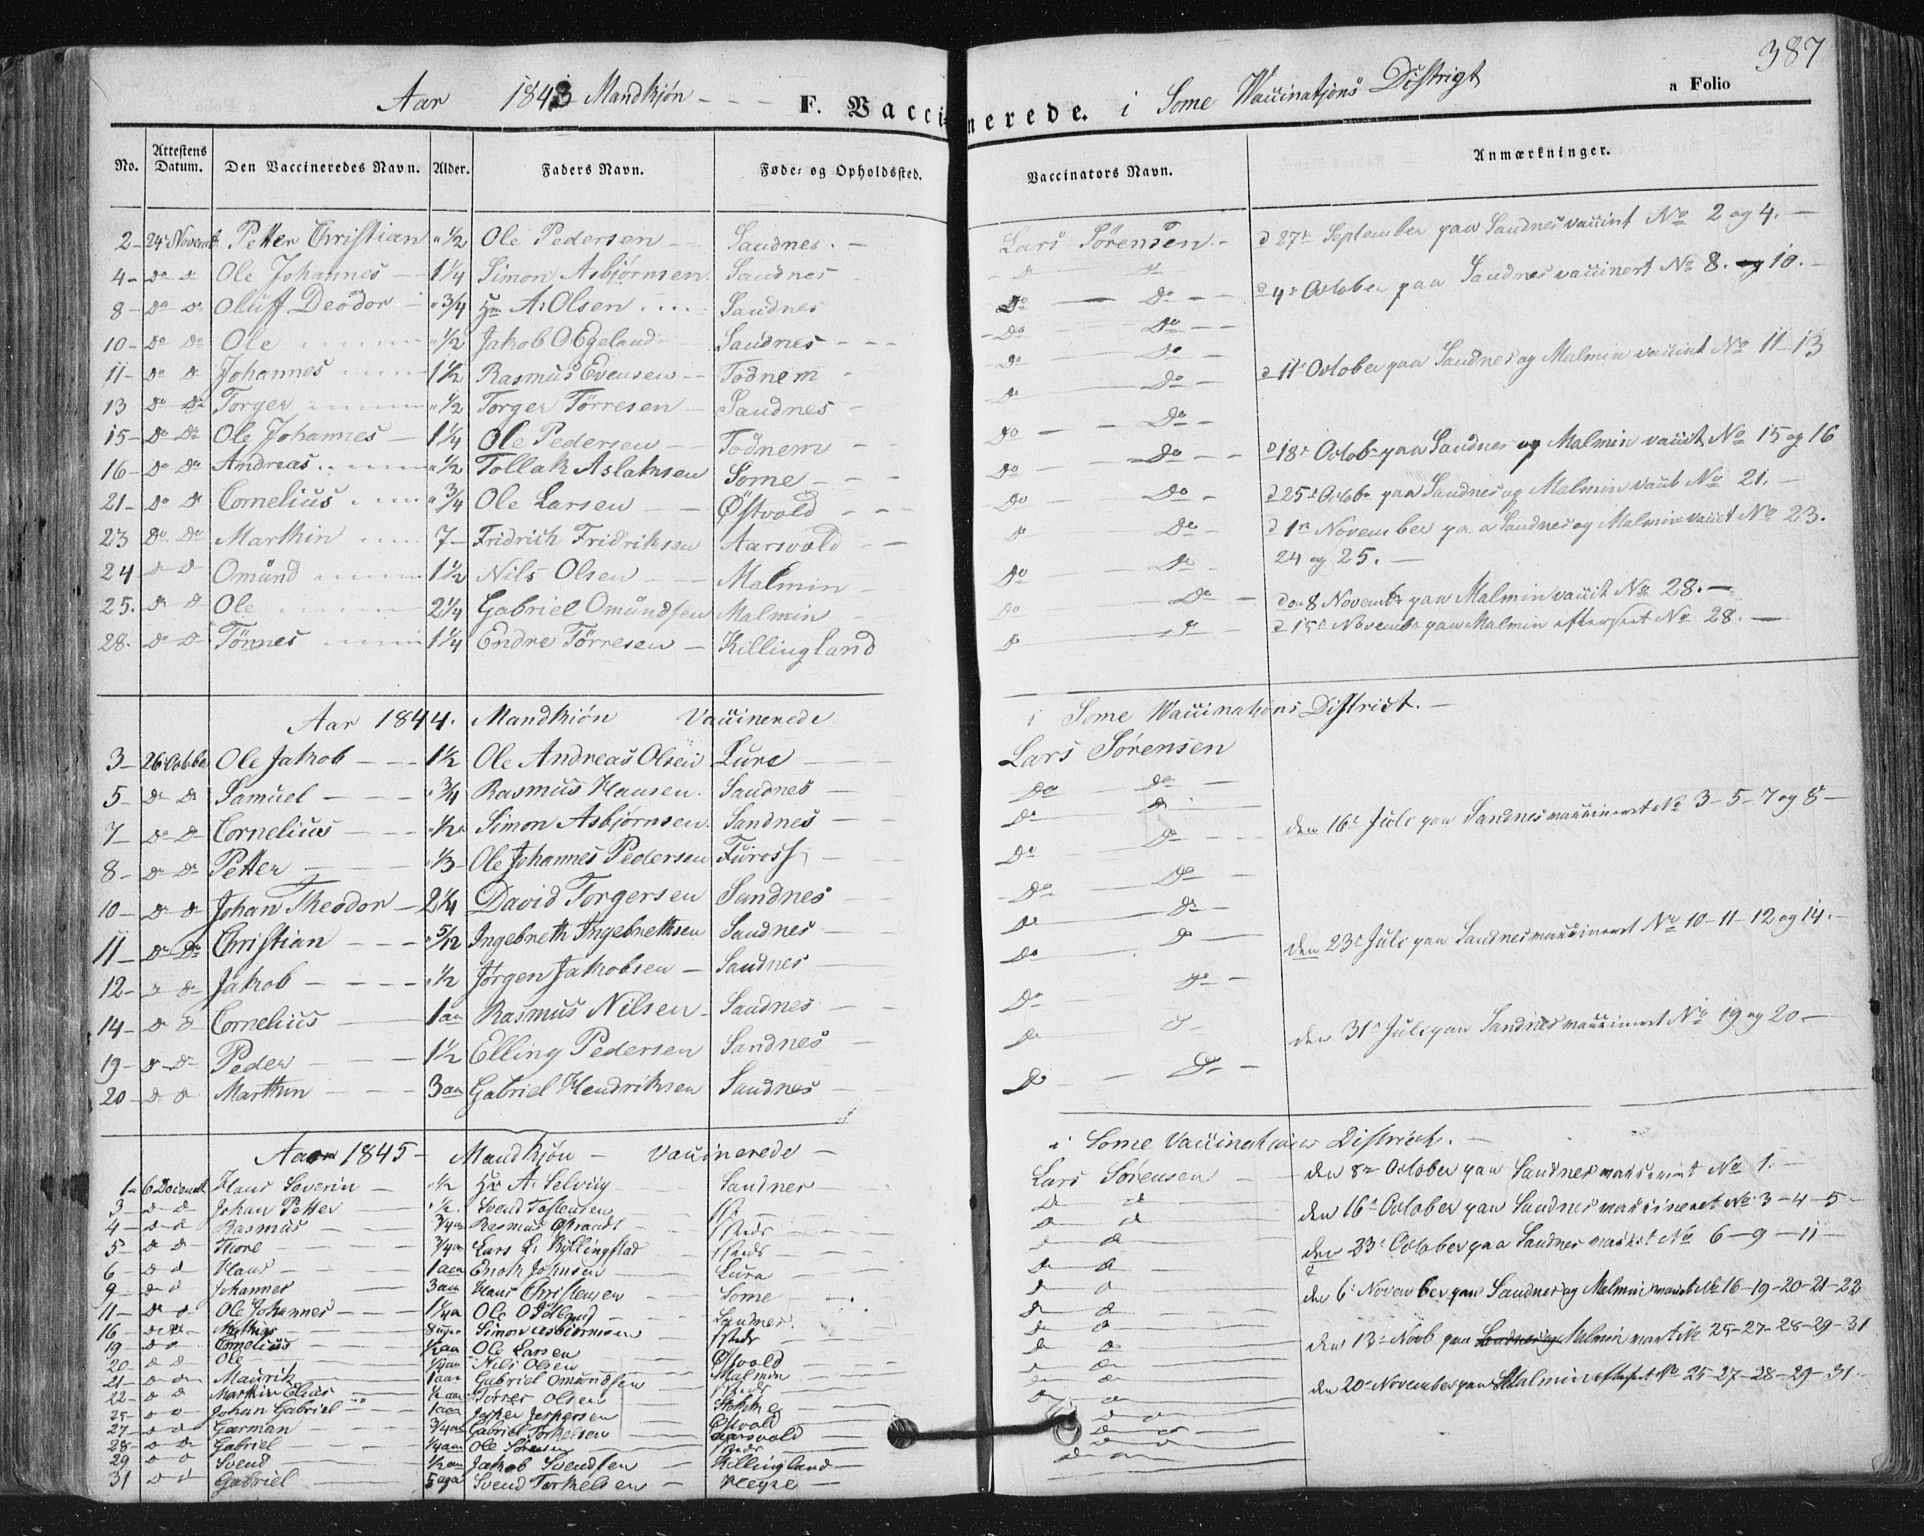 387
Aar 1843 Mandkjøn - - - F. Vaccinerede. i Some Vaccinations District a Folio
No. Attestens Datum. Den Vaccineredes Navn. Alder. Faders Navn. Føde- og Opholdssted. Vaccinators Navn. Anmærkninger.
2 - 24 Novemb Petter Christian " 1/2 Ole Pedersen Sandnes. - Lars Sørensen. - d 27de September paa Sandnes vaccint No 2 og 4. -
4 - do do Ole Johannes - 1 1/4 Simon Asbjørnsen Sandnes do do
8 - do do Oluff Deodor - " 3/4 Hr A. Olsen Sandnes Do - Do - - d 4de October paa Sandnes vaccinert No 8. og 10. -
10 - do do Ole " 1/2 Jakob O Egeland Sandnes - - - Do Do - -
11 - do do Johannes 1 1/2 Rasmus Evensen - Todnem - Do Do - d 11te October paa Sandnes og Malmin vaccint No 11 - 13
13 do do Torger " 1/2 Torger Tørresen - Sandnes - Do Do -
15 - do do Ole Johannes - 1 1/4 Ole Pedersen - - Todnem - - Do - - Do - d 18de Octob paa Sandnes og Malmin vaccit No 15 og 16
16 - do do Andreas " 1/2 Tollak Aslaksen Some - - - Do Do - -
21 - do do Cornelius " 3/4 Ole Larsen - - Østvold - - - Do Do - d 25de Octob paa Sandnes og Malmin vaccit No 21. -
23 do do Markin 7 - Fridrich Fridriksen Aarsvold - - Do Do - d 1ste November paa Sandnes og Malmin vaccit No 23.
24 do do Omund 1 1/2 Nils Olsen - - - Malmin - Do Do - 24 og 25. -
25. do do Ole 2 1/4 Gabriel Omundsen Malmin - Do Do - den 8 Novemb paa Malmin vaccit No 28. -
28. do do Tønnes 1 1/4 Endre Tørresen - Killingland Do do d 15de Novemb paa Malmin efterseet No 28. -
Aar 1844. Mandkiøn Vaccinerede i Some Vaccinations District. -
3 - 26 Octobe Ole Jakob - - - 1 1/2 Ole Andreas Olsen Lura - - Lars Sørensen
5 - do do Samuel - - - " 3/4 Rasmus Hansen. Sandnes - Do Do -
7 - do do Cornelius - - - " 1/2 Simon Asbjørnsen. Sandnes - - Do Do den 16de Juli paa Sandnes vaccineret No 3 - 5 - 7 og 8 -
8 - do do Petter - - - " 1/3 Ole Johannes Pedersen - - Do Do -
10 - do do Johan Theodor - 2 1/4 David Torgersen Sandnes - Do Do -
11 - do do Christian - - - " 5/12 Ingebreth Ingebrethsen Sandnes - Do Do - den 23de Juli paa Sandnes vaccineret No 10 - 11 - 12 og 14. -
12 - do do Jakob - - - - " 1/2 Jørgen Jakobsen - Sandnes - Do do -
14 - do do Cornelius - 1 aar Rasmus Nilsen - Sandnes - - Do Do -
19 - do do Peder - - 1 1/2 Elling Pedersen Sandnes - Do do - den 31te Juli paa Sandnes vaccineret No 19 og 20 -
20 - do do Marthin - - - 3 aar Gabriel Hendriksen Sandnes - Do - Do -
Aar 1845 - Mandkjøn - Vaccinerede - i Some Vaccinations District. -
1 - 6 Decembr Hans Severin - " 1/2 Hr A. Selvig - Sandnes - Lars Sørensen - - den 8de October paa Sandnes vaccineret No 1. -
3 - do do Johan Petter - - " 1/2 Svend do do
4 - do do Rasmus - - 3/4 Rasmus - steds - do do den 16de October paa Sandnes vaccineret No 3 - 4 - 5 -
5 - do do Thore - - 3/4 Lars L. Byllingstad - steds - do do
6 - do do Hans - - 1 aar Enok Johnsen - Lura - do do den 23de October paa Sandnes No 6 - 9 - 11 -
9 - do do Johannes - - 3 aar Hans Christensen - Some - do do
11 - do do Ole Johannes - - 1 1/4 Ole - Sandnes - do do den 6te November paa Sandnes og Malmin No 16 - 19 - 20 - 21 - 22
16 - do do Mathias - 8 uger Simon Asbiørnsen - steds - do do
19 - do do Cornelius - 1/2 aar Ole Larsen - Østvold - do do den 13de Novb paa Sandnes og Malmin No 25 - 27 - 28 - 29 - 31
20 - do do Ole - 1/4 aar Nils Olsen - Malmin - do do
21 - do do Maurik - 1 aar Gabriel Omundsen - steds - do do den 20de November paa Malmin efterseet No 25 - 27 - 28 - 29 - 31. -
22 - do do Markin Elias - 1/2 aar Tørres Olsen - do do
25 - do do Johan Gabriel - 1 aar Jesper Jespersen - Østvold - do do
27 - do do Gaerman - 3/4 aar Gabriel Torkelsen - Aarsvold - do do
28 - do do Gabriel - 1/4 aar Ole Sørensen - steds - do do
29 do do Svend - 1/2 aar Jakob Svendsen - Killingland - do do
31 do do Gabriel - 5 Svend Torkelsen -